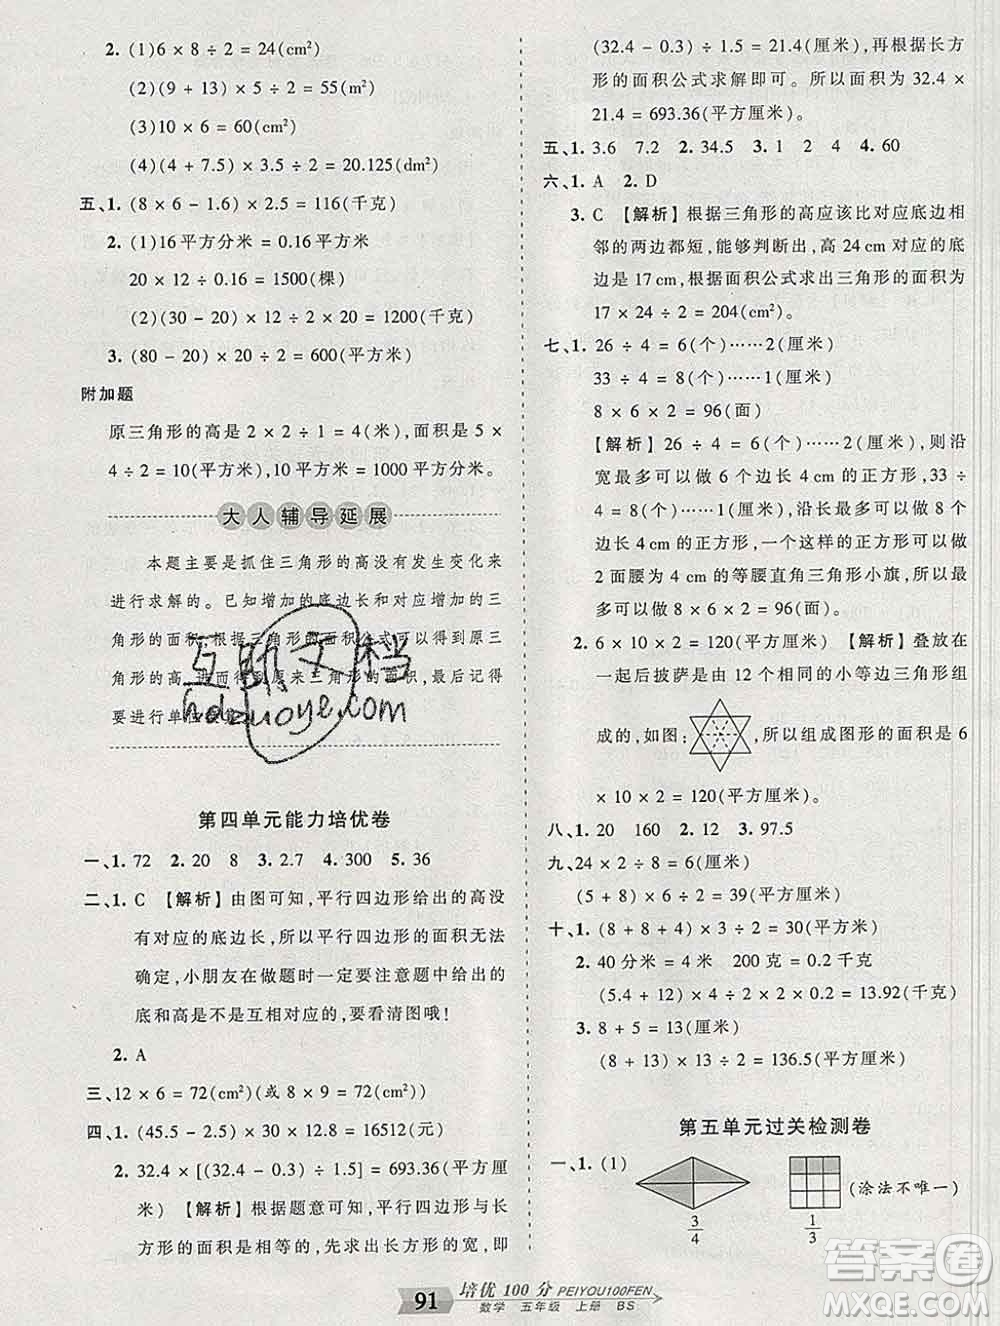 2. (1)6 × 8 ÷ 2 = 24(cm²)
(2)(9 + 13) × 5 ÷ 2 = 55(m²)
(3)10 × 6 = 60(cm²)
(4)(4 + 7.5) × 3.5 ÷ 2 = 20.125(dm²)
五、1. (8 × 6 - 1.6) × 2.5 = 116(千克)
2. (1)16 平方分米 = 0.16 平方米
20 × 12 ÷ 0.16 = 1500(棵)
(2)(30 - 20) × 20 × 12 ÷ 2 = 1200(千克)
3. (80 - 20) × 20 ÷ 2 = 600(平方米)
附加题
原三角形的高是 2 × 2 ÷ 1 = 4(米),面积是 5 ×
4 ÷ 2 = 10(平方米),10 平方米 = 1000 平方分米。
大人辅导延展
本题主要是抓住三角形的高没有发生变化来
进行求解的。已知增加的底边长和对应增加的三
角形的面积,根据三角形的面积公式可以得到原三
角形的高,进而得到原来三角形的面积。最后记得
要进行单位换算。
互助文档
hdzuoye.com
第四单元能力培优卷
一、1. 72 2. 20 8 3. 2.7 4. 300 5. 36
二、1. C 【解析】由图可知,平行四边形给出的高没
有对应的底边长,所以平行四边形的面积无法
确定,小朋友在做题时一定要注意题中给出的
底和高是不是互相对应的,要看清图哦!
2. A
三、12 × 6 = 72(cm²)(或 8 × 9 = 72(cm²))
四、1. (45.5 - 2.5) × 30 × 12.8 = 16512(元)
2. 32.4 × [(32.4 - 0.3) ÷ 1.5] = 693.36(平方厘
米) 【解析】根据题意可知,平行四边形与长
方形的面积是相等的,先求出长方形的宽,即
(32.4 - 0.3) ÷ 1.5 = 21.4(厘米),再根据长方
形的面积公式求解即可。所以面积为 32.4 ×
21.4 = 693.36(平方厘米)。
五、1. 3.6 7.2 2. 34.5 3. 1 2 4 4. 60
六、1. A 2. D
3. C 【解析】根据三角形的高应该比对应底边相
邻的两边都短,能够判断出,高 24 cm 对应的底
边是 17 cm,根据面积公式求出三角形的面积为
17 × 24 ÷ 2 = 204(cm²)。
七、1. 26 ÷ 4 = 6(个)……2(厘米)
33 ÷ 4 = 8(个)……1(厘米)
8 × 6 × 2 = 96(面)
【解析】26 ÷ 4 = 6(个)……2(厘米),则沿
宽最多可以做 6 个边长 4 cm 的正方形,33 ÷
4 = 8(个)……1(厘米),沿长最多可以做 8 个
边长 4 cm 的正方形,一个这样的正方形可以做
2 面腰为 4 cm 的等腰直角三角形小旗,所以最
多可以做 8 × 6 × 2 = 96(面)。
2. 6 × 10 × 2 = 120(平方厘米) 【解析】叠放在
一起后披萨是由 12 个相同的小等边三角形组
成的,如图: ,所以组成图形的面积是 6
× 10 × 2 = 120(平方厘米)。
八、1. 20 160 2. 12 3. 97.5
九、24 × 2 ÷ 8 = 6(厘米)
(5 + 8) × 6 ÷ 2 = 39(平方厘米)
十、1. (8 + 8 + 4) × 3 ÷ 2 = 30(平方厘米)
2. 40 分米 = 4 米 200 克 = 0.2 千克
(5.4 + 12) × 4 ÷ 2 × 2 × 0.2 = 13.92(千克)
3. 8 + 5 = 13(厘米)
(8 + 13) × 13 ÷ 2 = 136.5(平方厘米)
第五单元过关检测卷
一、1. (1) (涂法不唯一)
3/4 1/3
91 培优 100 分 PEIYOU100FEN
数学 五年级 上册 BS
答案圈
MXQE.COM